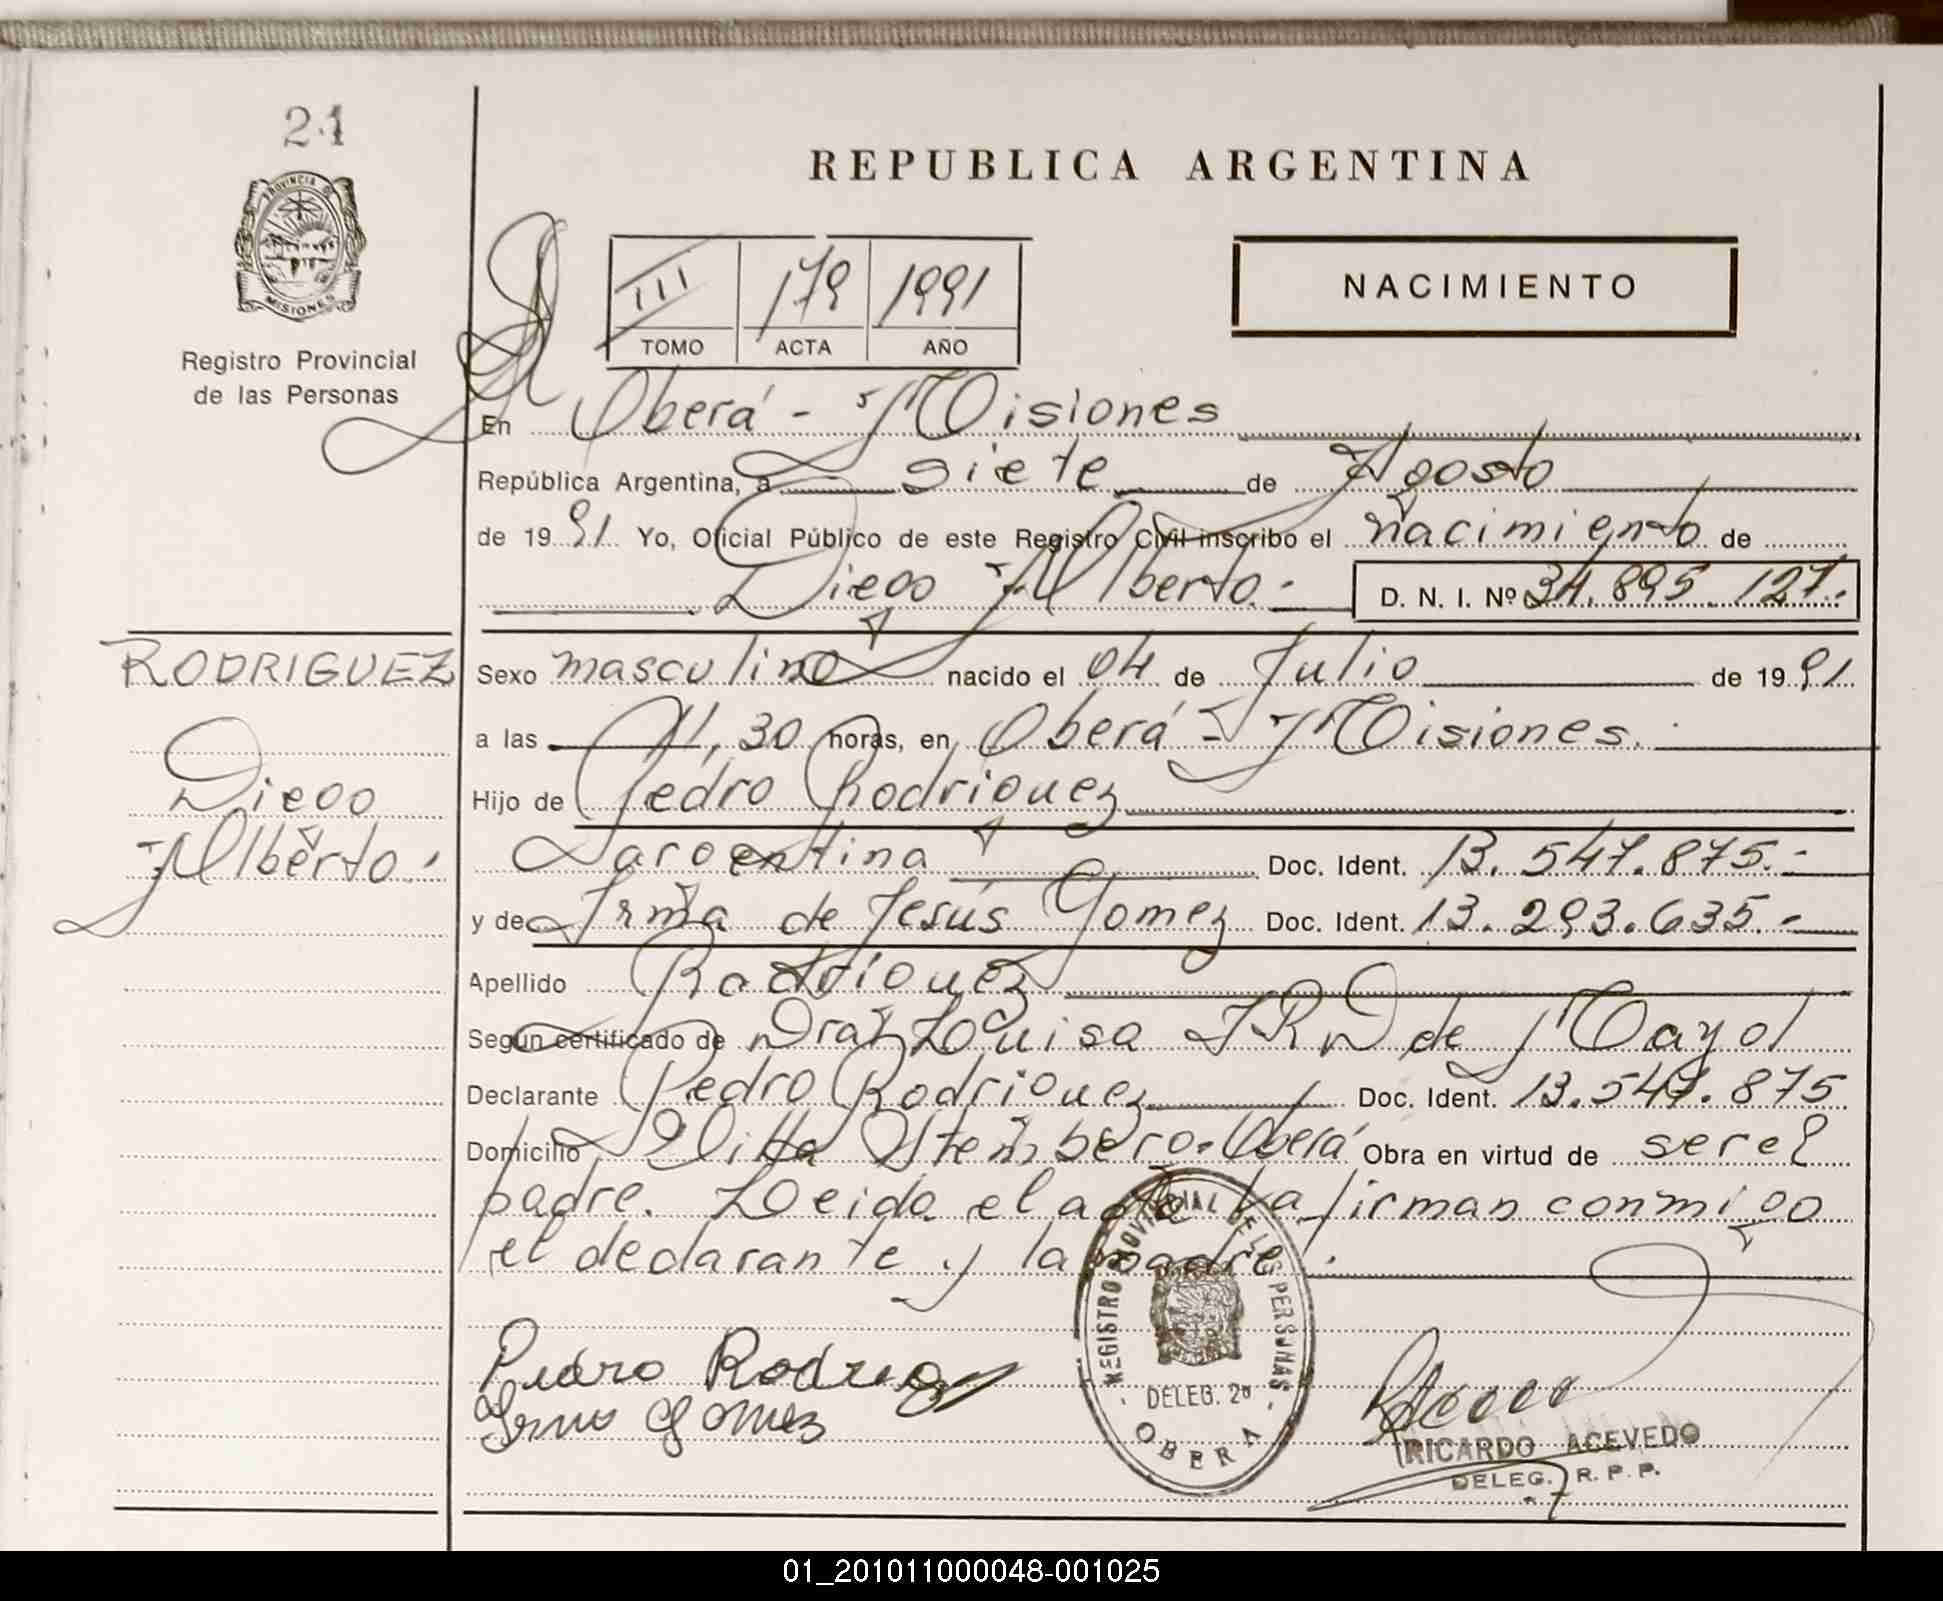 21
PROVINCIA DE
MISIONES
Registro Provincial
de las Personas
REPUBLICA ARGENTINA
III 179 1991
TOMO ACTA AÑO
NACIMIENTO
En Oberá - Misiones
República Argentina, a siete de Agosto
de 1991 Yo, Oficial Público de este Registro Civil inscribo el nacimiento de
Diego Alberto.- D. N. I. Nº 34.895.127.-
RODRIGUEZ
Diego
Alberto.-
Sexo masculino nacido el 04 de Julio de 1991
a las 11,30 horas, en Oberá - Misiones.
Hijo de Pedro Rodriguez
argentina Doc. Ident. 13.547.875.-
y de Irma de Jesús Gomez Doc. Ident. 13.293.635.-
Apellido Rodriguez
Según certificado de Dra. Louisa de Mayol
Declarante Pedro Rodriguez Doc. Ident. 13.547.875
Domicilio Villa Stemberg-Oberá Obra en virtud de ser el
padre. Leida el acta la firman conmigo
el declarante y la madre.
Pedro Rodriguez
Irma Gomez
REGISTRO PROVINCIAL DE LAS PERSONAS
DELEG. 2ª
OBERA
RICARDO ACEVEDO
DELEG. R. P. P.
01_201011000048-001025